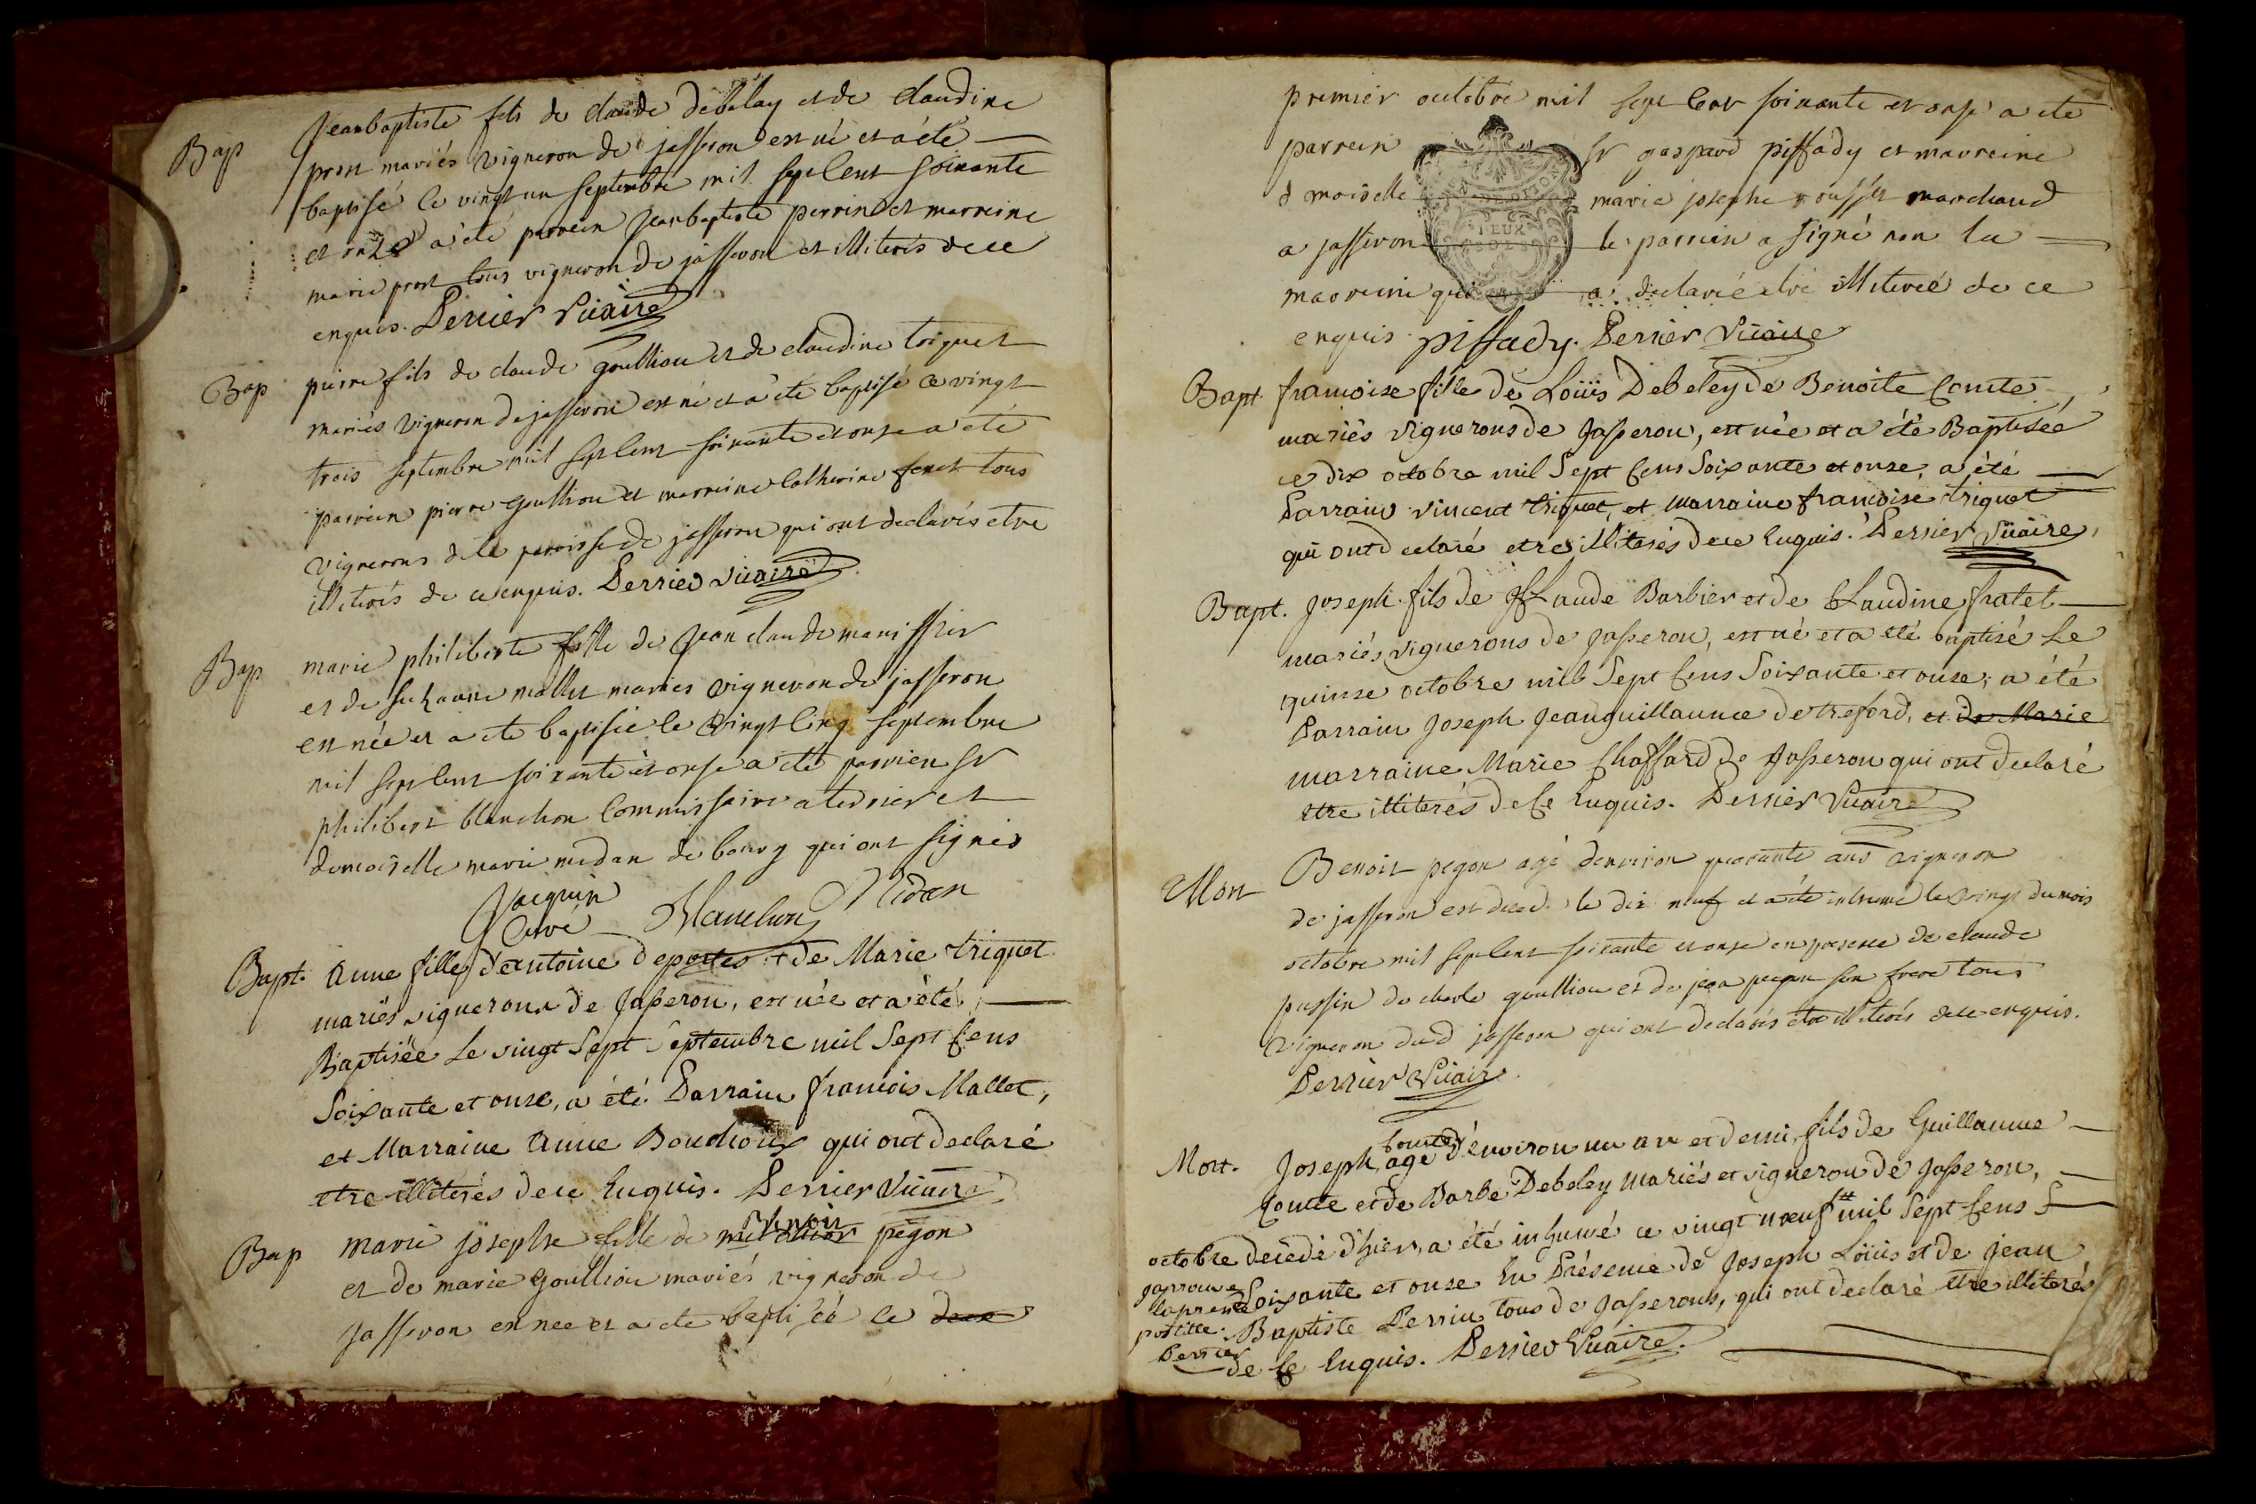 Bap
Jeanbaptiste fils de claude debelay et de claudine
prost mariés vigneron de jasseron est né et a été
baptisé le vingt un septembre mil sept cent soixante
et onze a été parrein Jeanbaptiste perrin et marreine
marie prost tous vigneron de jasseron et illiterés de ce
enquis. Perrier Vicaire
Bap
pierre fils de claude goullion et de claudine triquet
mariés vigneron de jasseron est né et a été baptisé ce vingt
trois septembre mil sept cent soixante et onze a été
parrein pierre goullion et marreine Catherine feret tous
vignerons de la parroisse de jasseron qui ont declarés etre
illiterés de ce enquis. Perrier vicaire
Bap
marie philiberte fille de Jean claude manissier
et de suzanne mallet mariés vigneron de jasseron
est née et a ete baptisée le vingt cinq septembre
mil sept cent soixante et onze a été parrien sr
philibert blanchon Commissaire a terrier et
demoiselle marie midan de bourg qui ont signés
Jacquin Curé Blanchon Midan
Bapt. Anne fille d'antoine deportes + de Marie triquet
mariés vigneron de Jasseron, est née et a été
Baptisée le vingt sept Septembre mil Sept Cens
Soixante et onze, a été Parrain francois Mallet,
et Marraine Anne Bouchoux qui ont declaré
etre illiterés de ce Enquis. Perrier Vicaire
Benoit
Bap marie josephe fille de pegon
et de marie goullion mariés vigneron de
Jasseron est nee et a ete baptisée le deux
premier octobre mil sept cent soixante et onze a ete
parrein sr gaspard piffady et marreine
d moiselle marie josephe rousset marchand
a jasseron le parrein a signé non la
marreine qui a declaré etre illiterée de ce
enquis piffady. Perrier Vicaire
Bapt. francoise fille de Loüis Debeley de Benoite Comte,
mariés vignerons de Jasseron, est née et a été Baptisée
ce dix octobre mil Sept Cens Soixante et onze, a été
Parrain vincent triquet, et marraine francoise triquet
qui ont declaré etre illiterés de ce Enquis. Perrier Vicaire,
Bapt. Joseph fils de Claude Barbier et de Claudine fratel
mariés vignerons de Jasseron, est né et a été baptisé Le
quinze octobre mil Sept Cens Soixante et onze, a été
Parrain Joseph Jeanguillaume de treford, et de Marie
marraine Marie Chaffard de Jasseron qui ont declaré
etre illiterés de Ce Enquis. Perrier Vicaire
Mort
Benoit pegon agé denviron quarante ans vigneron
de jasseron est deced. le dix neuf et a été inhumé le vingt du mois
octobre mil sept cent soixante et onze en presence de claude
pussin de charle goullion et de jean pegon son frere tous
vigneron dud jasseron qui ont declarés etre illiterés de ce enquis.
Perrier Vicaire.
Comte
Mort. Joseph, agé d'environ un an et demi, fils de Guillaume
Comte et de Barbe Debeley mariés et vigneron de Jasseron,
octobre decedé d'hier, a été inhumé ce vingt nœuf mil Sept Cens
Soixante et onze En Présence de Joseph Loüis et de Jean
Baptiste Perrin tous de Jasseron, qui ont declaré etre illiterés
de Ce Enquis. Perrier Vicaire.
postille.
Perrier